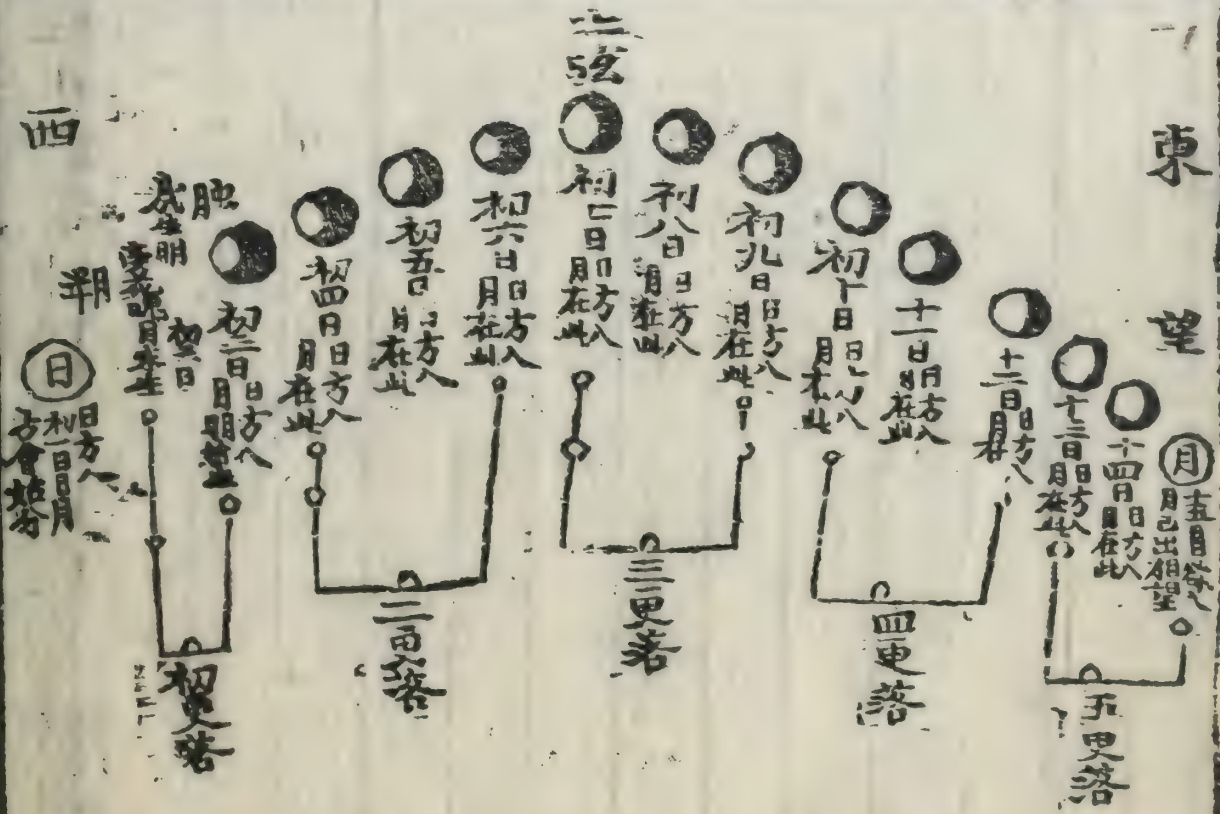 東
望
月
十五日日欲入
月已出相望
十四日日方入
月在此
十三日日方入
月在此
十二日日方入
十一日日方入
月在此
初十日日方入
月在此
初九日日方入
月在此
初八日日方入
月在此
上弦
初七日日方入
月在此
初六日日方入
月在此
初五日日方入
月在此
初四日日方入
月在此
初三日日方入
月明
朏
哉生明
初二日
西
朔
日
日方入
初一日日月
方會
五更落
四更落
三更落
二更落
初更落